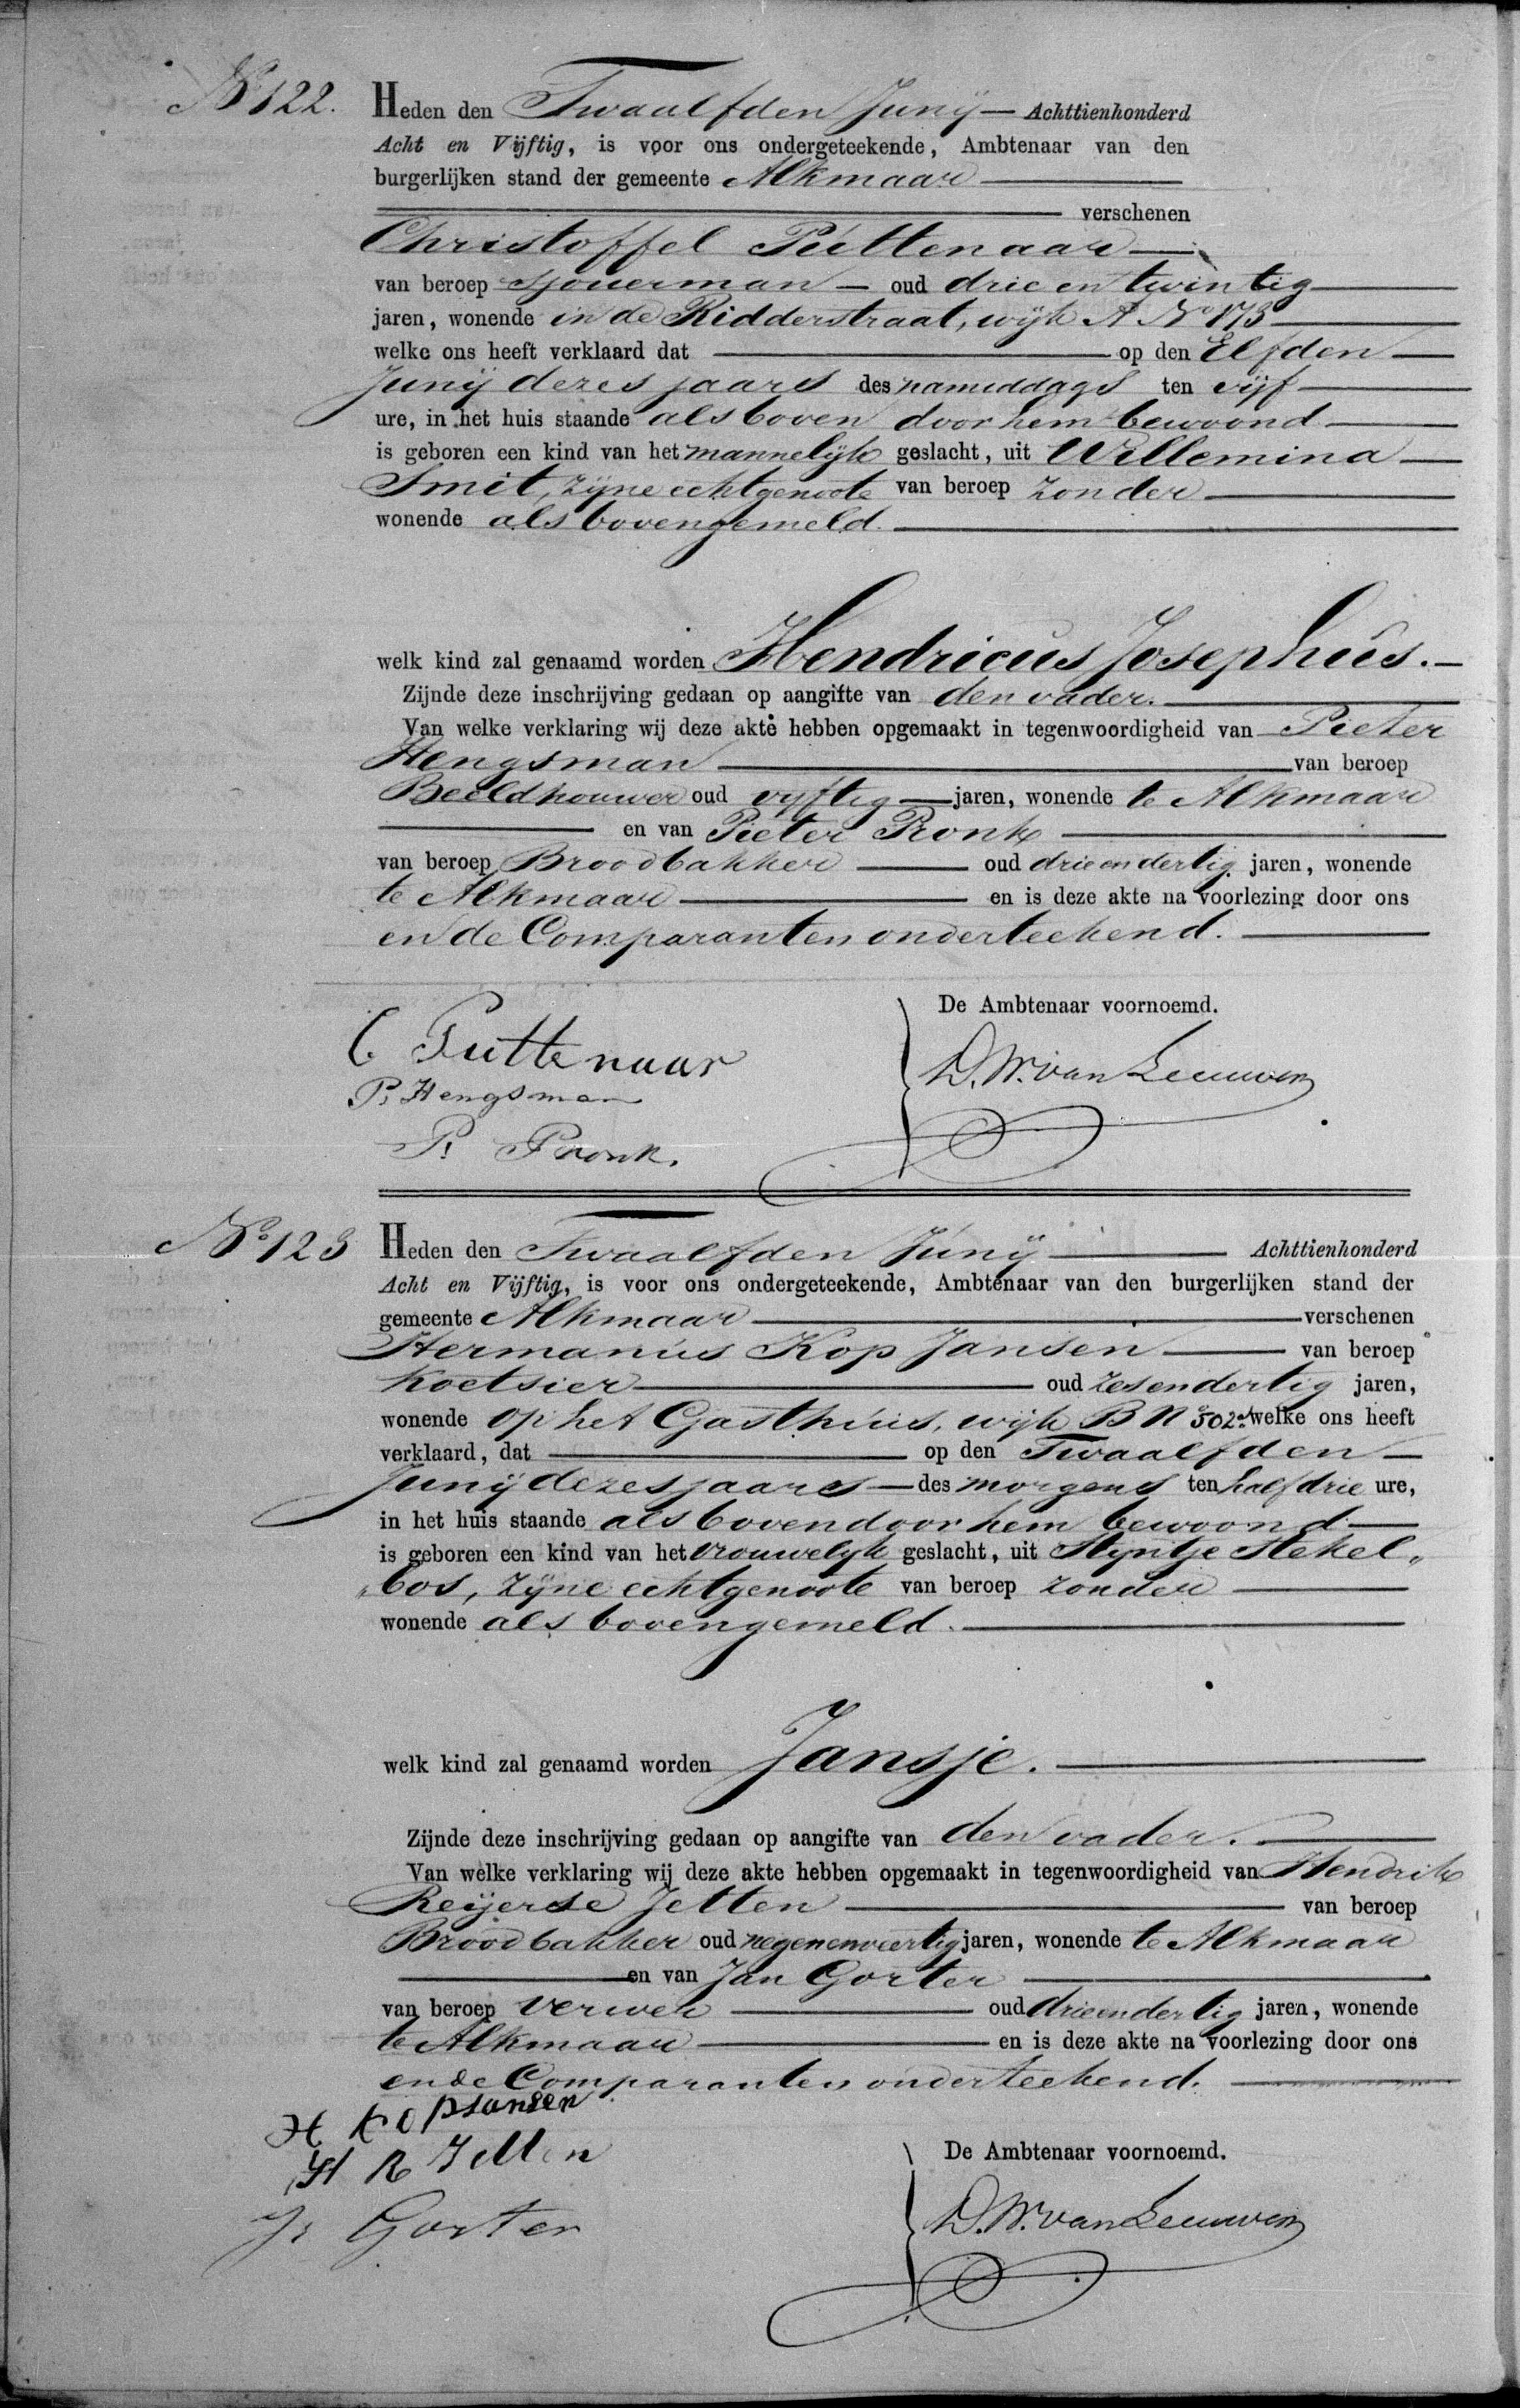 No 122. Heden den Twaalfden Junij Achttienhonderd
Acht en Vijftig, is voor ons ondergeteekende, Ambtenaar van den
burgerlijken stand der gemeente Alkmaar
verschenen
Christoffel Puttenaar
van beroep Sjouerman oud drie en twintig
jaren, wonende in de Ridderstraat, wijk A No 173
welke ons heeft verklaard dat op den Elfden
Junij dezes jaars des namiddags ten vijf
ure, in het huis staande als boven door hem bewoond
is geboren een kind van het mannelijk geslacht, uit Willemina
Smit, zijne echtgenoote van beroep zonder
wonende als bovengemeld.
welk kind zal genaamd worden Hendricus Josephus.
Zijnde deze inschrijving gedaan op aangifte van den vader.
Van welke verklaring wij deze akte hebben opgemaakt in tegenwoordigheid van Pieter
Hengsman van beroep
Beeldhouwer oud vyftig jaren, wonende te Alkmaar
en van Pieter Pronk
van beroep Broodbakker oud drieendertig jaren, wonende
te Alkmaar en is deze akte na voorlezing door ons
en de Comparanten onderteekend.
De Ambtenaar voornoemd.
C Puttenaar
D. W. van Leeuwen
P. Hengsman
P. Pronk.
No 123 Heden den Twaalfden Junij Achttienhonderd
Acht en Vijftig, is voor ons ondergeteekende, Ambtenaar van den burgerlijken stand der
gemeente Alkmaar verschenen
Hermanus Kop Jansen van beroep
Koetsier oud zesendertig jaren,
wonende op het Gasthuis, wijk B No 502 welke ons heeft
verklaard, dat op den Twaalfden
Junij dezes jaars des morgens ten half drie ure,
in het huis staande als boven door hem bewoond
is geboren een kind van het vrouwelijk geslacht, uit Stijntje Stekel„
„bos, zijne echtgenoote van beroep zonder
wonende als bovengemeld.
welk kind zal genaamd worden Jansje.
Zijnde deze inschrijving gedaan op aangifte van den vader.
Van welke verklaring wij deze akte hebben opgemaakt in tegenwoordigheid van Hendrik
Reijerse Jetten van beroep
Broodbakker oud negenenveertig jaren, wonende te Alkmaar
en van Jan Gorter
van beroep verwer oud drieendertig jaren, wonende
te Alkmaar en is deze akte na voorlezing door ons
en de Comparanten onderteekend.
H Kop Jansen
H R Jetten
De Ambtenaar voornoemd.
D. W. van Leeuwen
Js Gorter